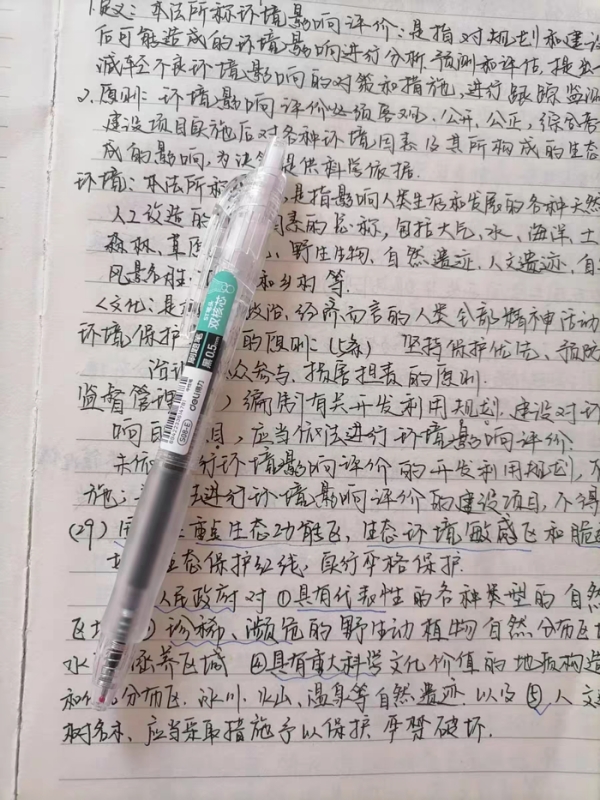 1.定义:本法所称环境影响评价:是指对规划和建设
后可能造成的环境影响进行分析 预测和评估,提出
减轻不良环境影响的对策和措施,进行跟踪监测
2.原则:环境影响评价必须客观、公开、公正,综合考
建设项目实施后对各种环境因素及其所构成的生态
成的影响,为决策提供科学依据.
环境:本法所称 ,是指影响人类生存和发展的各种天然
人工改造的 因素的总称,包括大气、水、海洋、土
森林、草原 、野生生物、自然遗迹、人文遗迹、自
风景名胜 和乡村 等.
政治、经济而言的人类全部精神活动
环境保护 的原则:(5条) 坚持保护优先、预防
众参与、损害担责的原则.
监督管理 )编制有关开发利用规划.建设对环
响 目,应当依法进行环境影响评价.
未依 行环境影响评价的开发利用规划,不
施; 进行环境影响评价的建设项目,不得
(29) 重点生态功能区,生态环境敏感区和脆
生态保护红线,实行严格保护.
人民政府对①具有代表性的各种类型的自然
区域 ②珍稀、濒危的野生动植物自然分布区域
水 涵养区域 ④具有重大科学文化价值的地质构造
和 分布区.冰川、火山、温泉等自然遗迹.以及⑤人文
树名木、应当采取措施予以保护 严禁破坏.
双珠芯
黑0.5
deli得力
S08-E